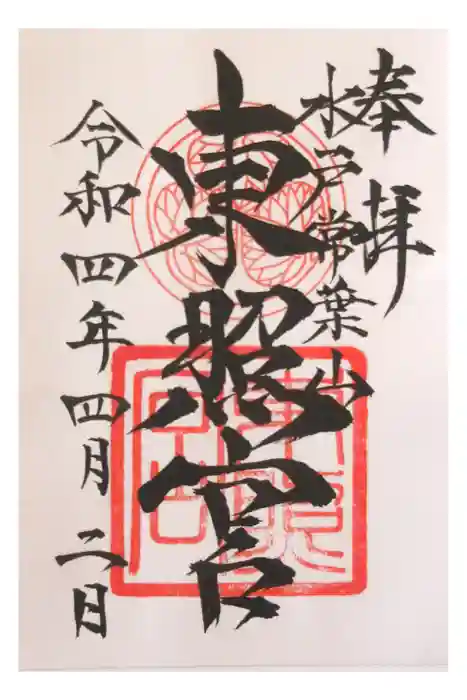 奉拝
水戸常葉山
東照宮
令和四年四月二日